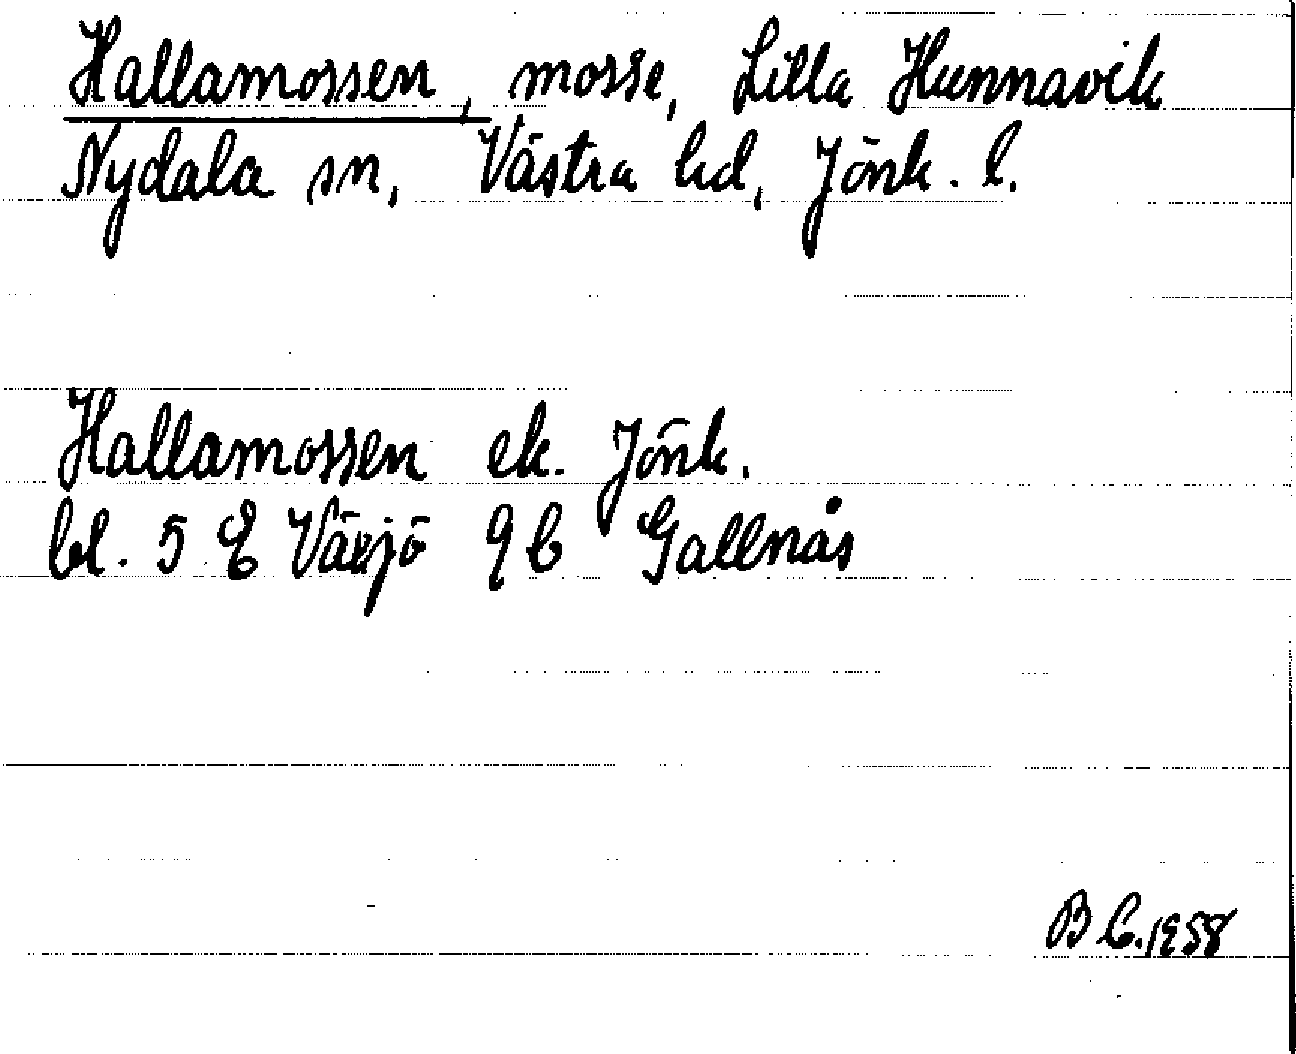 Hallamossen, mosse, Lilla Hunnavik
Nydala sn, Västra hd, Jönk. l.
Hallamossen ek. Jönk.
bl. 5 E Växjö 9 b Gallnås
B C. 1958